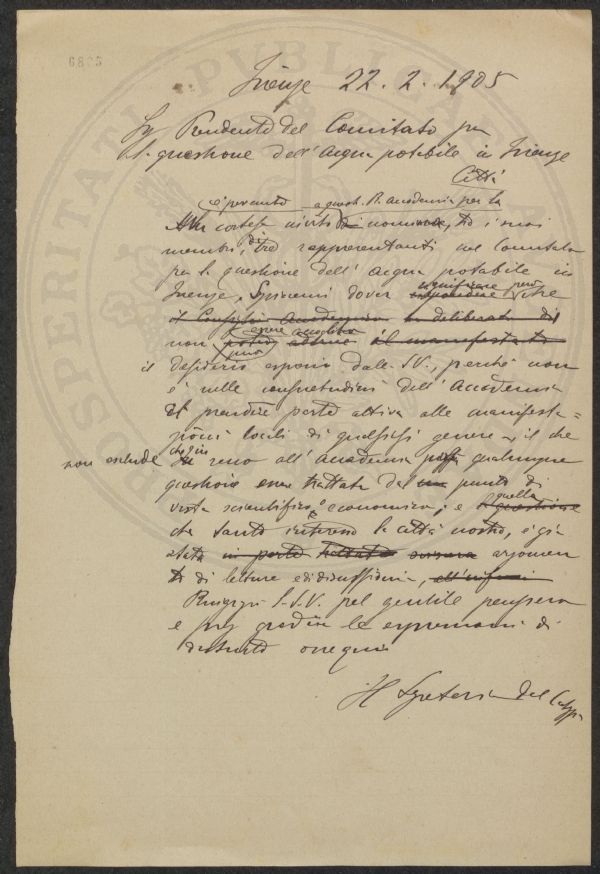 6825
PROSPERITATI PUBLICAE
Firenze 22. 2. 1905
Presidente del Comitato per
la questione dell'Acqua potabile in Firenze
Città
a questa R. Accademia per la
cortese invito di nominare, tra i suoi
membri, di rappresentanti nel Comitato
per la questione dell'Acqua potabile in
Firenze, dover significare però
il Consiglio Accademico deliberato di
non potrà essere accolto il manifestato
il desiderio espresso dalla S.V., perché non
è nelle consuetudini dell'Accademia
di prendere parte attiva alle manifesta=
zioni locali di qualsiasi genere, il che
non esclude che in seno all'Accademia possa qualunque
questione essere trattata dal punto di
vista scientifico e economico; e quella questione
che tanto interessa la città nostra, è già
stata in parte trattata argomen
to di letture e discussioni,
Ringrazio la S.V. pel gentile pensiero
e gradire le espressioni di
distinto ossequio
Il Segretario del